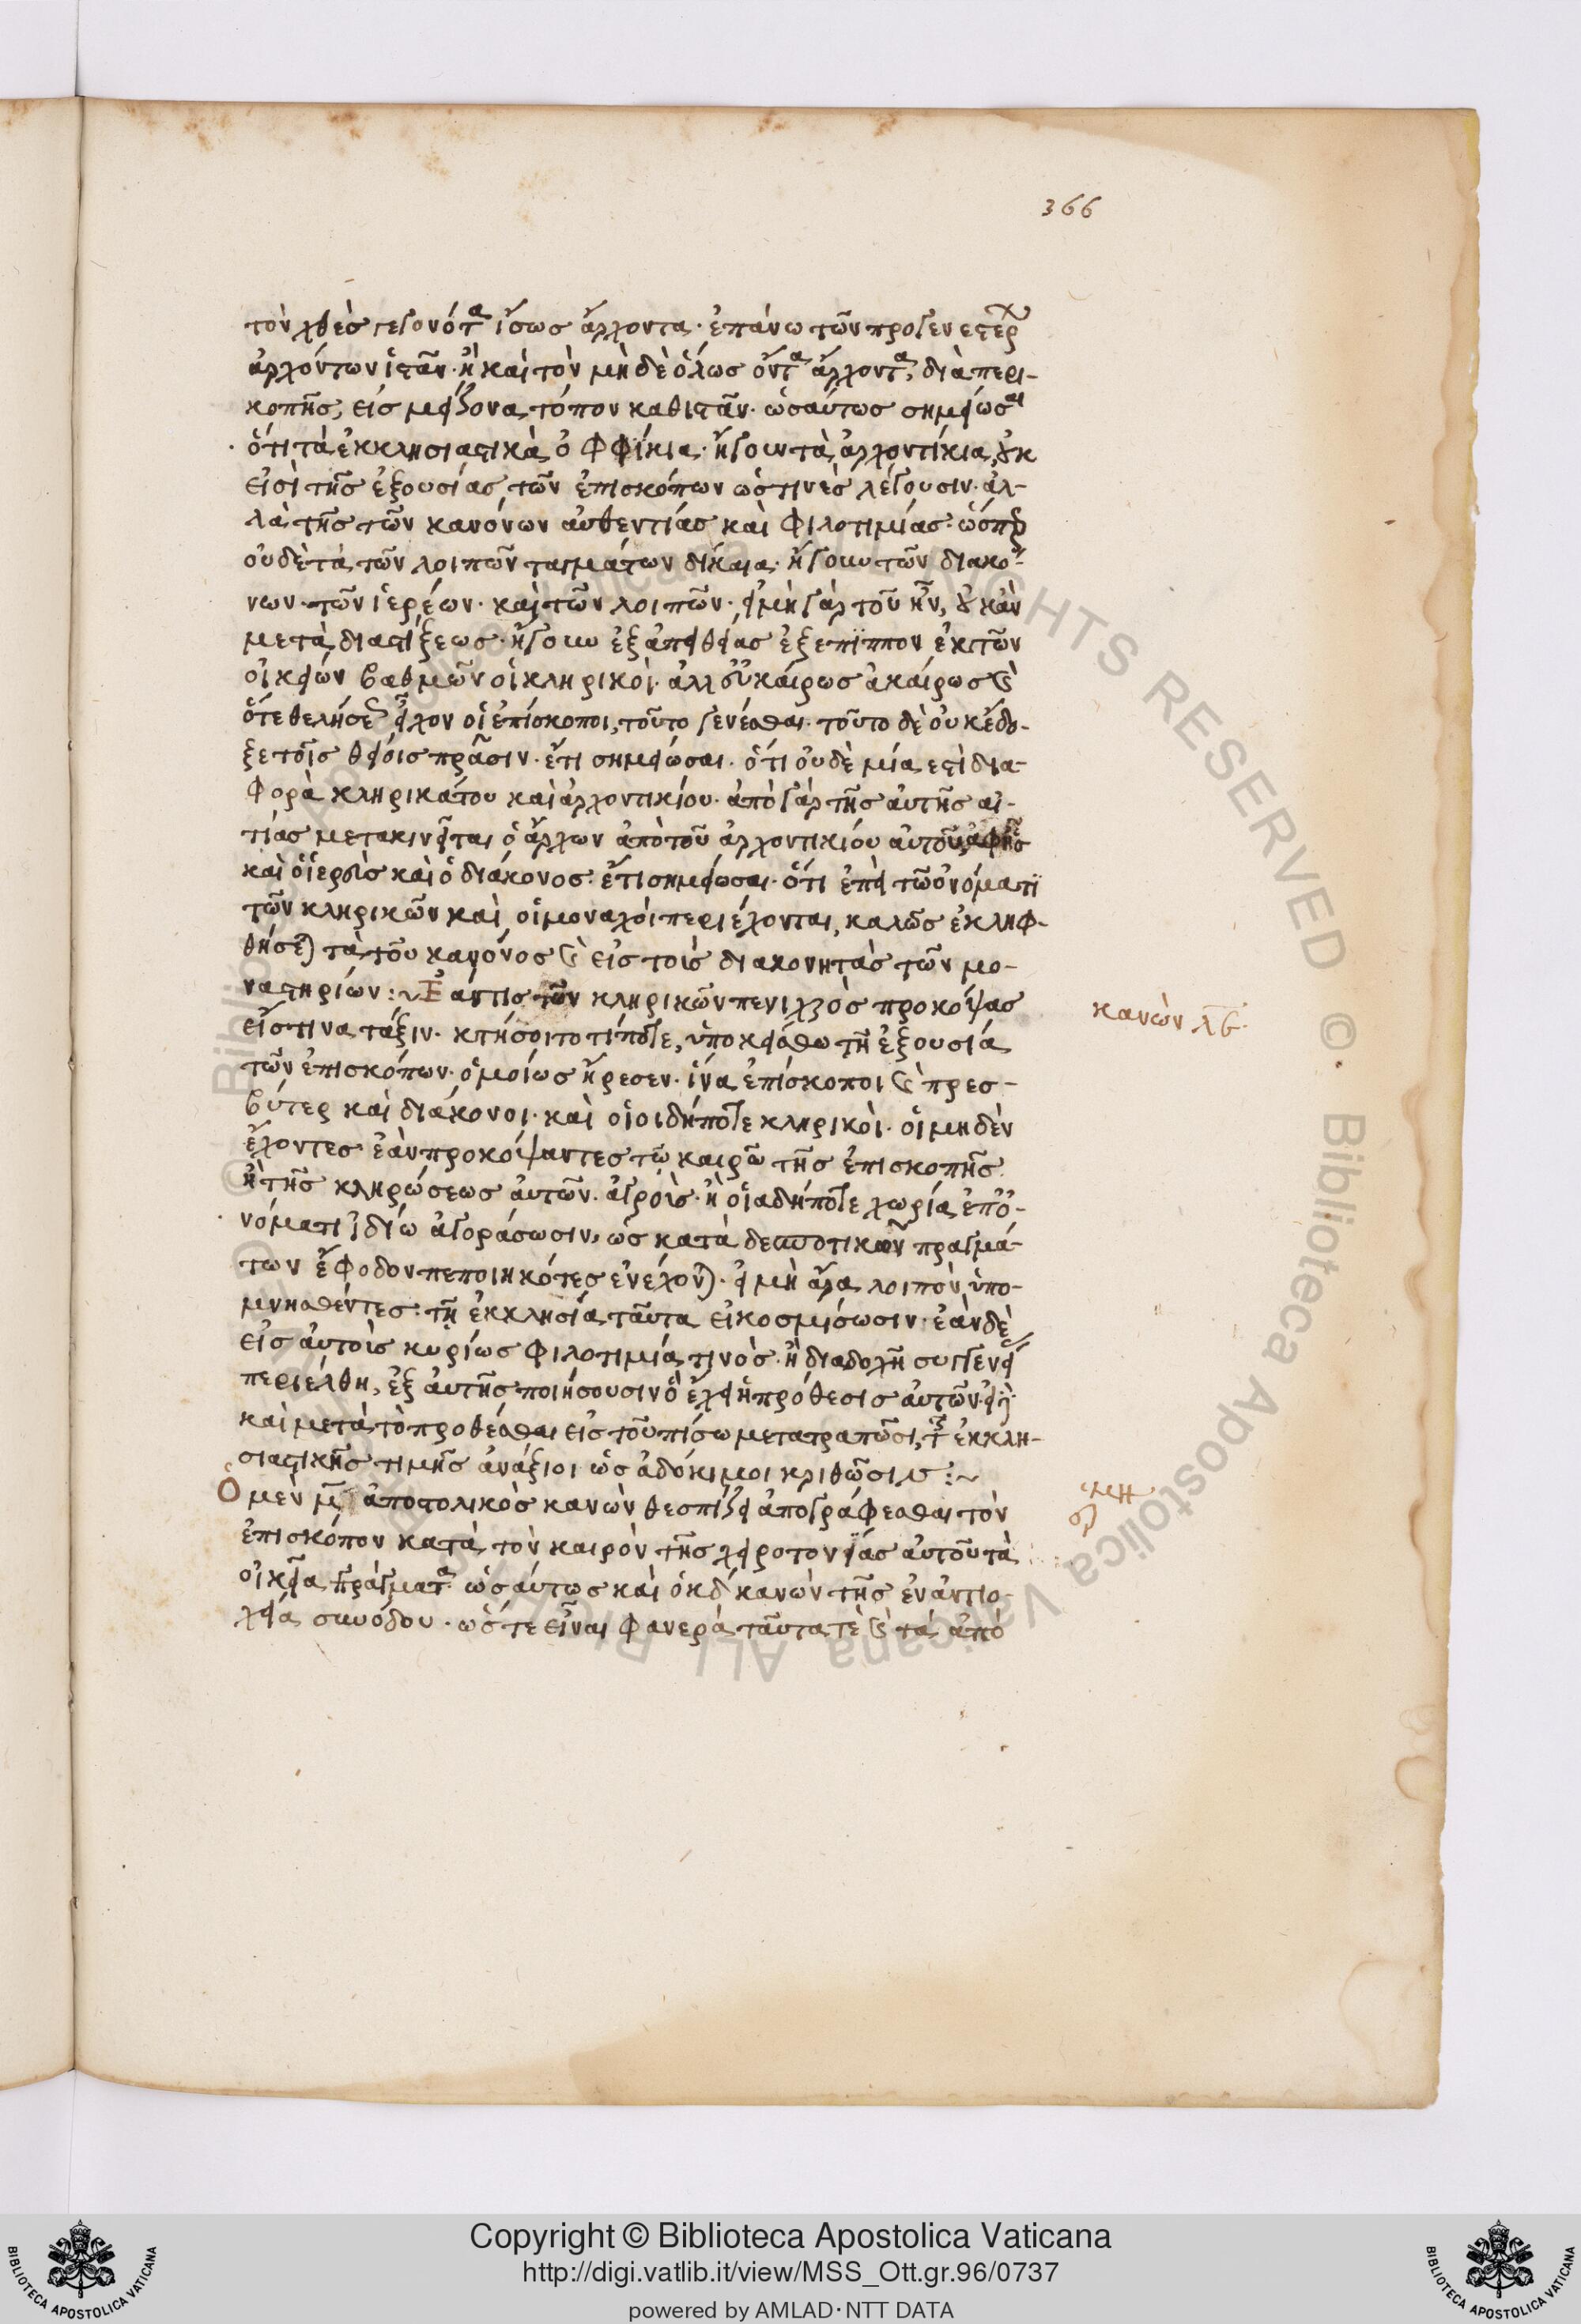 366
τὸν χθὲς γεγονότα ἴσως ἄρχοντα· ἐπάνω τῶν προγενεστέρων
ἀρχόντων ἱστᾶν· ἢ καὶ τὸν μὴ δὲ ὅλως ὄντα ἄρχοντα, διὰ περι-
κοπῆς, εἰς μείζονα τόπον καθιστᾶν· ὡσαύτως σημείωσαι
ὅτι τὰ ἐκκλησιαστικὰ ὀφφίκια· ἤγουν τὰ ἀρχοντίκια, οὐκ
εἰσὶ τῆς ἐξουσίας τῶν ἐπισκόπων ὥς τινες λέγουσιν· ἀλ-
λὰ τῆς τῶν κανόνων αὐθεντίας καὶ φιλοτιμίας· ὥσπερ
οὐδὲ τὰ τῶν λοιπῶν ταγμάτων δίκαια· ἤγουν τῶν διακό-
νων· τῶν ἱερέων· καὶ τῶν λοιπῶν· εἰ μὴ γὰρ τοῦτο ἦν, οὐκ ἂν
μετὰ διαστίξεως· ἤγουν ἐξ ἀπειθείας ἐξέπιππον ἐκ τῶν
οἰκείων βαθμῶν οἱ κληρικοί· ἀλλ' εὐκαίρως ἀκαίρως καὶ
ὅτε θελήσεως εἶχον οἱ ἐπίσκοποι, τοῦτο γενέσθαι· τοῦτο δὲ οὐκ ἔδο-
ξε τοῖς θείοις πρᾶσιν· ἔτι σημείωσαι· ὅτι οὐδὲ μία ἐστὶ δια-
φορὰ κληρικάτου καὶ ἀρχοντικίου· ἀπὸ γὰρ τῆς αὐτῆς αἰ-
τίας μετακινεῖται ὁ ἄρχων ἀπὸ τοῦ ἀρχοντικίου αὐτοῦ, ἀφ' ἧς
καὶ ὁ ἱερεὺς καὶ ὁ διάκονος· ἔτι σημείωσαι· ὅτι ἐπεὶ τῶ ὀνόματι
τῶν κληρικῶν καὶ οἱ μοναχοὶ περιέχονται, καλῶς ἐκληφ-
θήσεται τὰ τοῦ κανόνος καὶ εἰς τοὺς διακονητὰς τῶν μο-
ναστηρίων :~ Ἐάν τις τῶν κληρικῶν πενιχρὸς προκόψας
εἴς τινα τάξιν· κτήσοιτο τίποτε, ὑποκείσθω τῇ ἐξουσίᾳ
τῶν ἐπισκόπων· ὁμοίως ἤρεσεν· ἵνα ἐπίσκοποι καὶ πρεσ-
βύτεροι καὶ διάκονοι· καὶ οἱοιδήποτε κληρικοὶ· οἱ μηδὲν
ἔχοντες ἐὰν προκόψαντες τῷ καιρῷ τῆς ἐπισκοπῆς
ἢ τῆς κληρώσεως αὐτῶν· ἀγροὺς· ἢ οἱαδήποτε χωρία ἐπ' ὀ-
νόματι ἰδίῳ ἀγοράσωσιν, ὡς κατὰ δεσποτικῶν πραγμά-
των ἔφοδον πεποιηκότες ἐνέχονται· εἰ μὴ ἄρα λοιπὸν, ὑπο-
μνησθέντες· τῇ ἐκκλησίᾳ ταῦτα εἰκοσμίσωσιν· ἐὰν δὲ
εἰς αὐτοὺς κυρίως φιλοτιμία τινὸς· ἢ διαδοχῇ συγγενείας
περιέλθῃ, ἐξ αὐτῆς ποιήσουσιν ὃ ἔχει ἡ πρόθεσις αὐτῶν· εἰ δὲ
καὶ μετὰ τὸ προθέσθαι εἰς τοὐπίσω μετατραπῶσι, τῆς ἐκκλη-
σιαστικῆς τιμῆς ἀνάξιοι ὡς ἀδόκιμοι κριθῶσιν :~
Ὁ μὲν μ ἀποστολικὸς κανὼν θεσπίζει ἀπογράφεσθαι τὸν
ἐπισκόπον κατὰ τὸν καιρὸν τῆς χειροτονίας αὐτοῦ τὰ
οἰκεῖα πράγματα· ὡσαύτως καὶ ὁ κδ κανὼν τῆς ἐν ἀντιο-
χείᾳ συνόδου· ὥστε εἶναι φανερὰ ταῦτα τὲ καὶ τὰ ἀπὸ
κανὼν λβ·
Copyright © Biblioteca Apostolica Vaticana
http://digi.vatlib.it/view/MSS_Ott.gr.96/0737
powered by AMLAD·NTT DATA